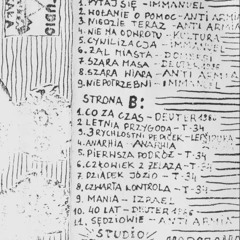 STUDIO
1. PYTAJ SIĘ - IMMANUEL
2. WOŁANIE O POMOC - ANTI ARMIA
3. NIGDZIE TERAZ - ANTI ARMIA
4. NIE MA ODWROTU - KULTURA
5. CYWILIZACJA - IMMANUEL
6. ŻAL MIASTA -
7. SZARA MASA - DEUTER
8. SZARA WIARA - ANTI ARMIA
9. NIEPOTRZEBNI - IMMANUEL
STRONA B:
1. CO ZA CZAS - DEUTER 1986
2. LETNIA PRZYGODA - T-34
3. 3 RYCHLOSTNI PEPICEK -
4. ANARHIA - ANARHIA
5. PIERWSZA PODRÓŻ - T-34
6. CZŁOWIEK Z ŻELAZA - T-34
7. DZIADEK JÓZIO - T-34
8. CZWARTA KONTROLA - T-34
9. MANIA - IZRAEL
10. 40 LAT - DEUTER 1986
11. SĘDZIOWIE - ANTI ARMIA
STUDIO